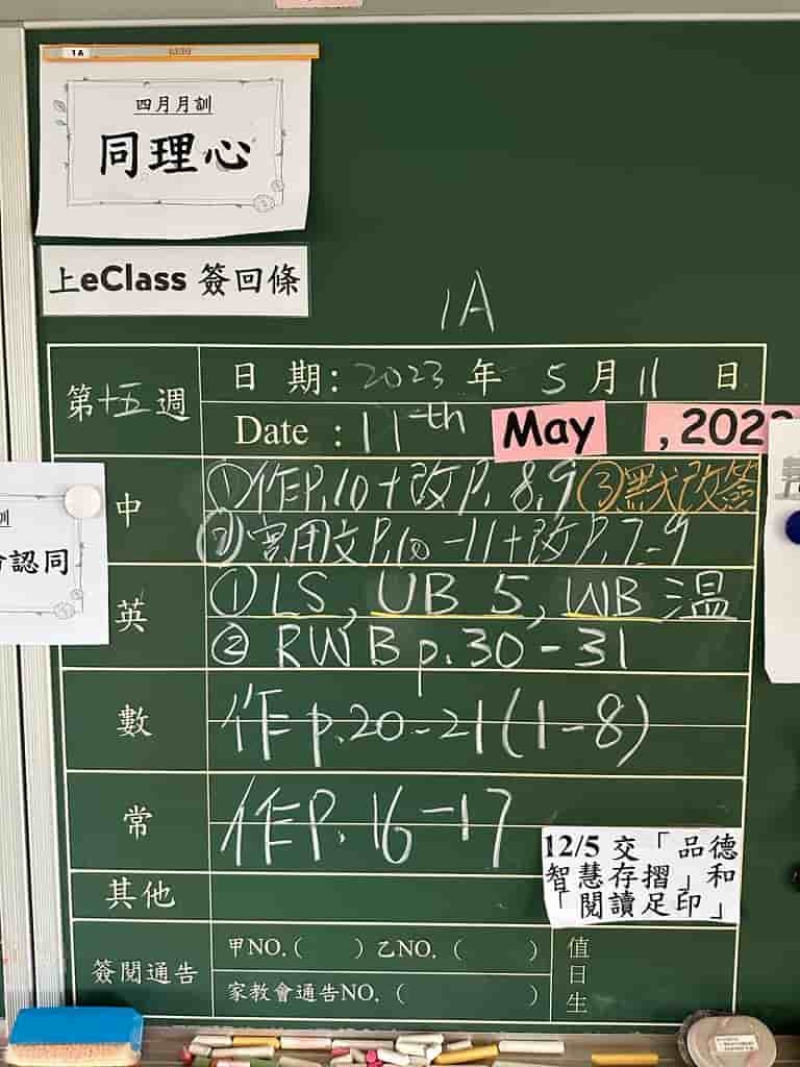 1A
四月月訓
同理心
上eClass 簽回條
1A
第十五週
日 期: 2023 年 5 月 11 日
Date : 11th May , 202
中
①作P.10+改P.8,9 ③默改簽
②實用文P.10-11+改P.7-9
認同
英
①LS, UB 5, WB 溫
② RWB p.30-31
數
作p.20-21(1-8)
常
作P.16-17
12/5 交「品德
智慧存摺」和
「閱讀足印」
其他
簽閱通告
甲NO.( ) 乙NO. ( )
家教會通告NO. ( )
值日生